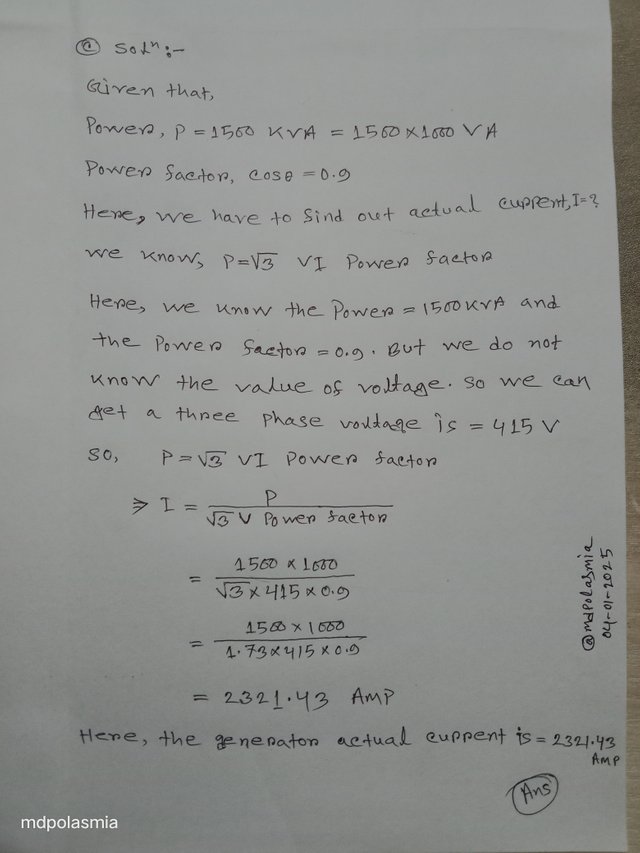 ⓒ Solⁿ:-
Given that,
Power, P = 1500 KVA = 1500 × 1000 VA
Power factor, cosθ = 0.9
Here, we have to find out actual current, I = ?
we know, P = √3 VI Power factor
Here, we know the Power = 1500 KVA and
the Power factor = 0.9. But we do not
know the value of voltage. so we can
get a three phase voltage is = 415 V
so, P = √3 VI Power factor
⇒ I = P / √3 V Power factor
= 1500 × 1000 / √3 × 415 × 0.9
= 1500 × 1000 / 1.73 × 415 × 0.9
= 2321.43 AMP
Here, the generator actual current is = 2321.43
AMP
Ans
@mdpolasmia
04-01-2025
mdpolasmia